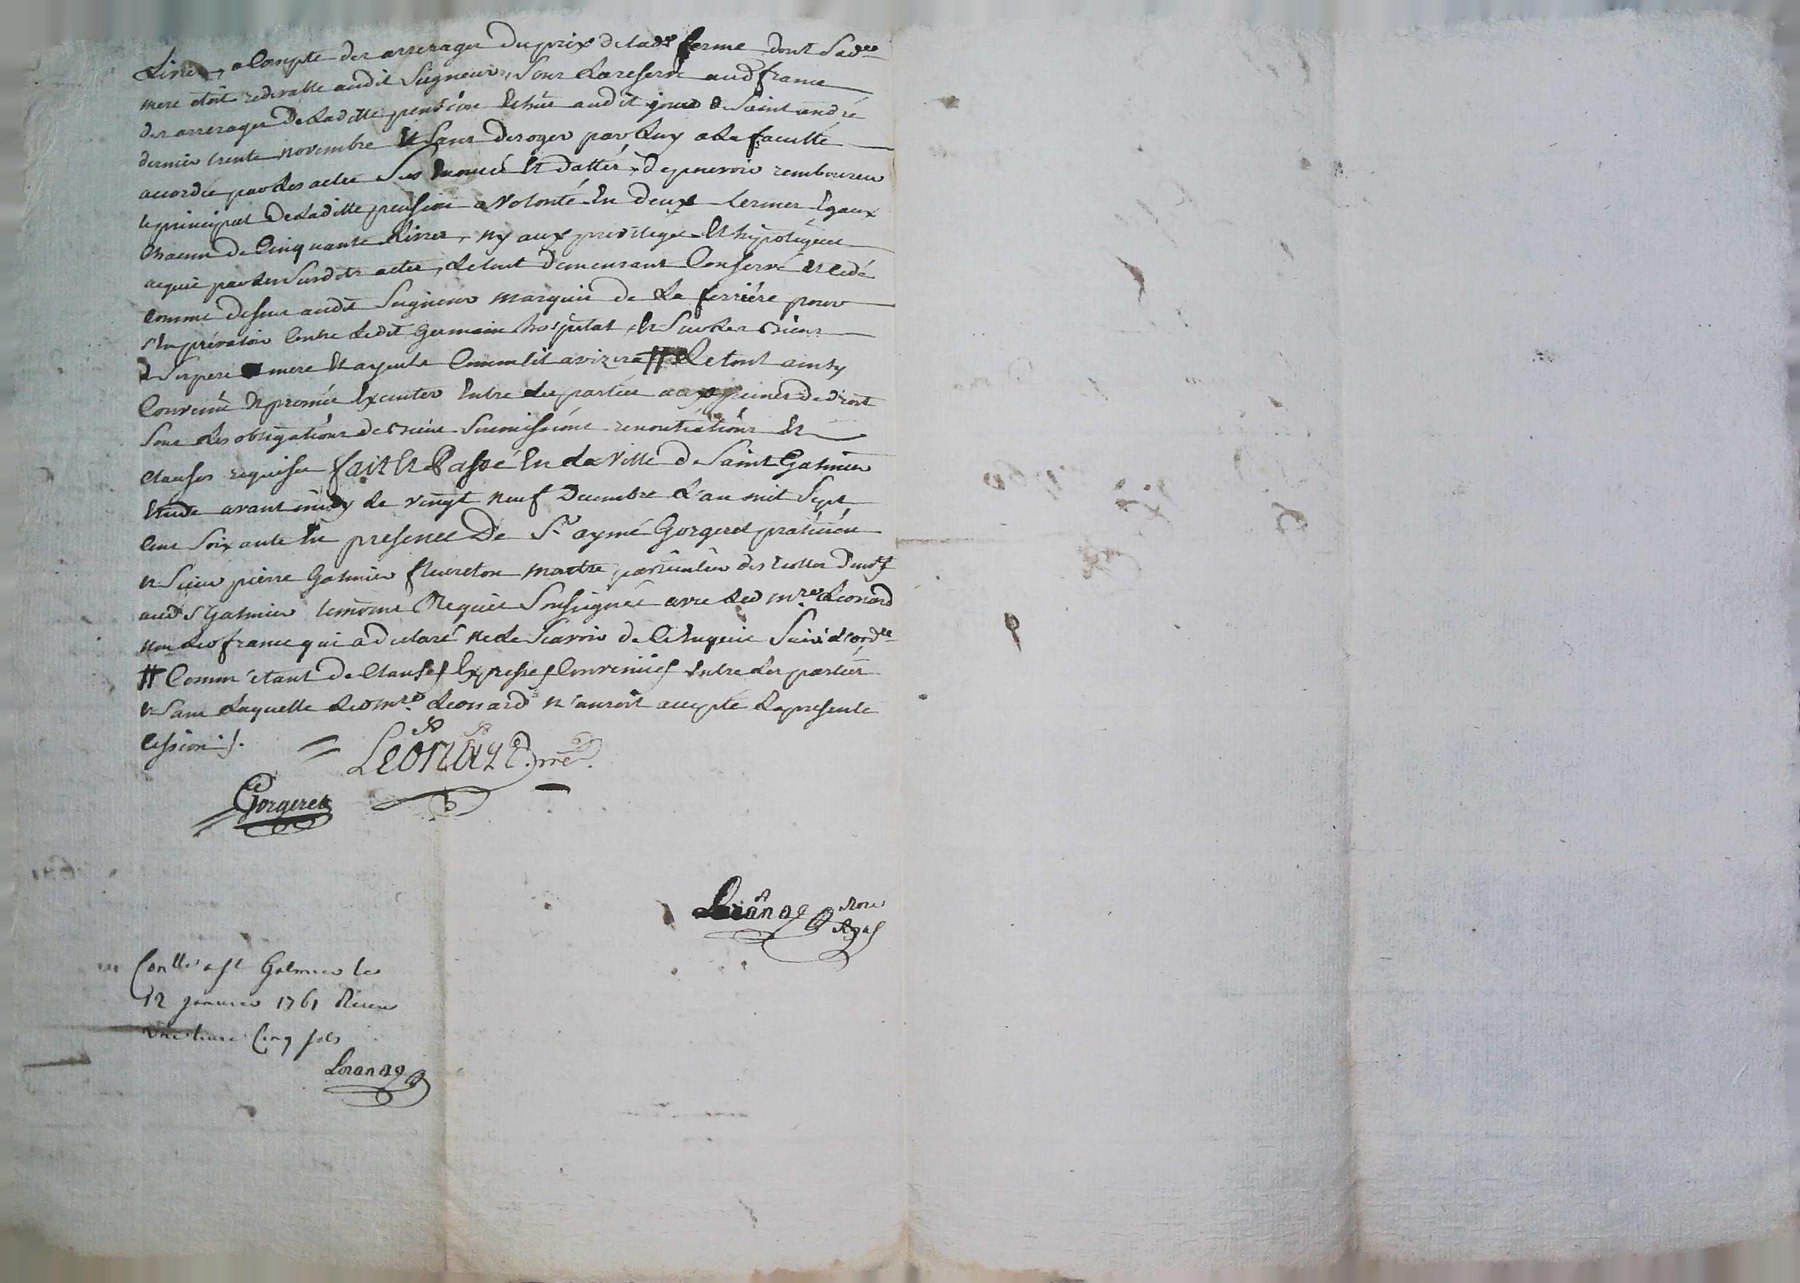 Livres, a Compte des arrerages Du prix de lade ferme dont Sade
mere étoit redevable audit Seigneur, Sous la reserve aud france
des arrerages De Laditte pension Echüe audit jour de Saint andré
dernier trente novembre Et Sans Deroger par Luy a La faculté
accordée par les actes Sus Enoncé Et dattés, de pouvoir rembourcer
le principal De Laditte pension a Volonté En deux termes Egaux
Chacun de Cinquante Livres, ny aux privilege Et hipoteque
acquis par les Susdits actes, le tout demeurant Conservé et Cedé
comme dessus audit Seigneur marquis de La ferriére pour
Contre Ledit Germain hospital, Et Sur les Biens
de Ses pere mere Et ayeuls Comm'il avizera // Le tout ainsy
Convenû Et promis Executer Entre les parties aux peines De droit
Sous les obligations de Biens Soumissions renontiations Et
Clauses requises fait Et Passé En La Ville de Saint Galmier
Etude avant midy le vingt neuf Decembre L'an mil Sept
Cent Soixante En presence De Sr aymé Gorgeret praticien
Et Sieur pierre Galmier fleureton maitre particulier des
aud St Galmier temoins Requis Soussignés avec Led mre Léonard
non Led france qui a declaré ne le Scavoir de Ce Enquis
// Comm'étant de Clauses Expresses Convenües Entre les parties
Et Sans Laquelle Led mre Léonard N'auroit accepté La presente
Cession ./.
Léonard
Gorgeret
Lorange Nore
Royal
Conllé a St Galmier le
12 janvier 1761 Receu
une livre Cinq sols
Lorange